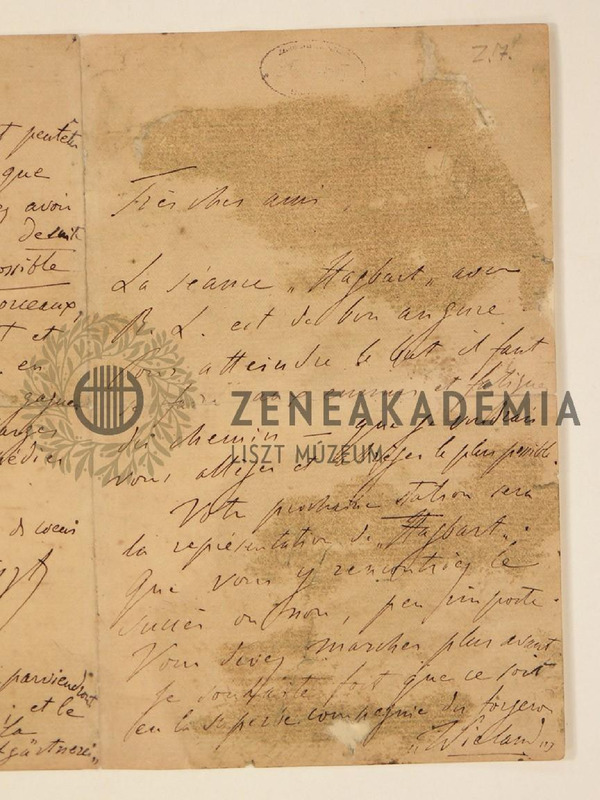 Z.17.
t peutetr
que
avoir
de suite
possible
morceaux,
t et
en
gagner
de coeur
parviendront
et le
La
gärtnerei"
Très cher ami,
La séance „Hagbart" avec
B. L. est de bon augure.
Pour atteindre le but il faut
se faire aux ennuis et fatigues
du chemin — que je voudrais
vous alléger et abréger le plus possible.
Votre prochaine station sera
la représentation de „Hagbart";
que vous y rencontriez le
succès ou non, peu importe.
Vous devez marcher plus avant
je souhaite fort que ce soit
en la superbe compagnie du forgeron
„Wieland"
ZENEAKADÉMIA
LISZT MÚZEUM